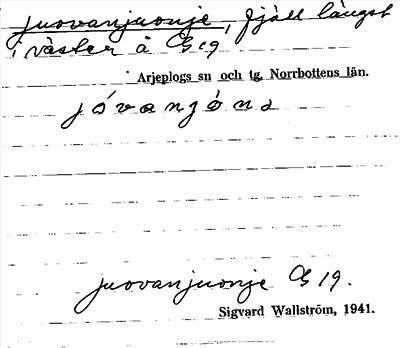 juovanjuonje, fjäll längst
i väster å G 19
Arjeplogs sn och tg. Norrbottens län.
juovanjuonje G 19.
Sigvard Wallström, 1941.